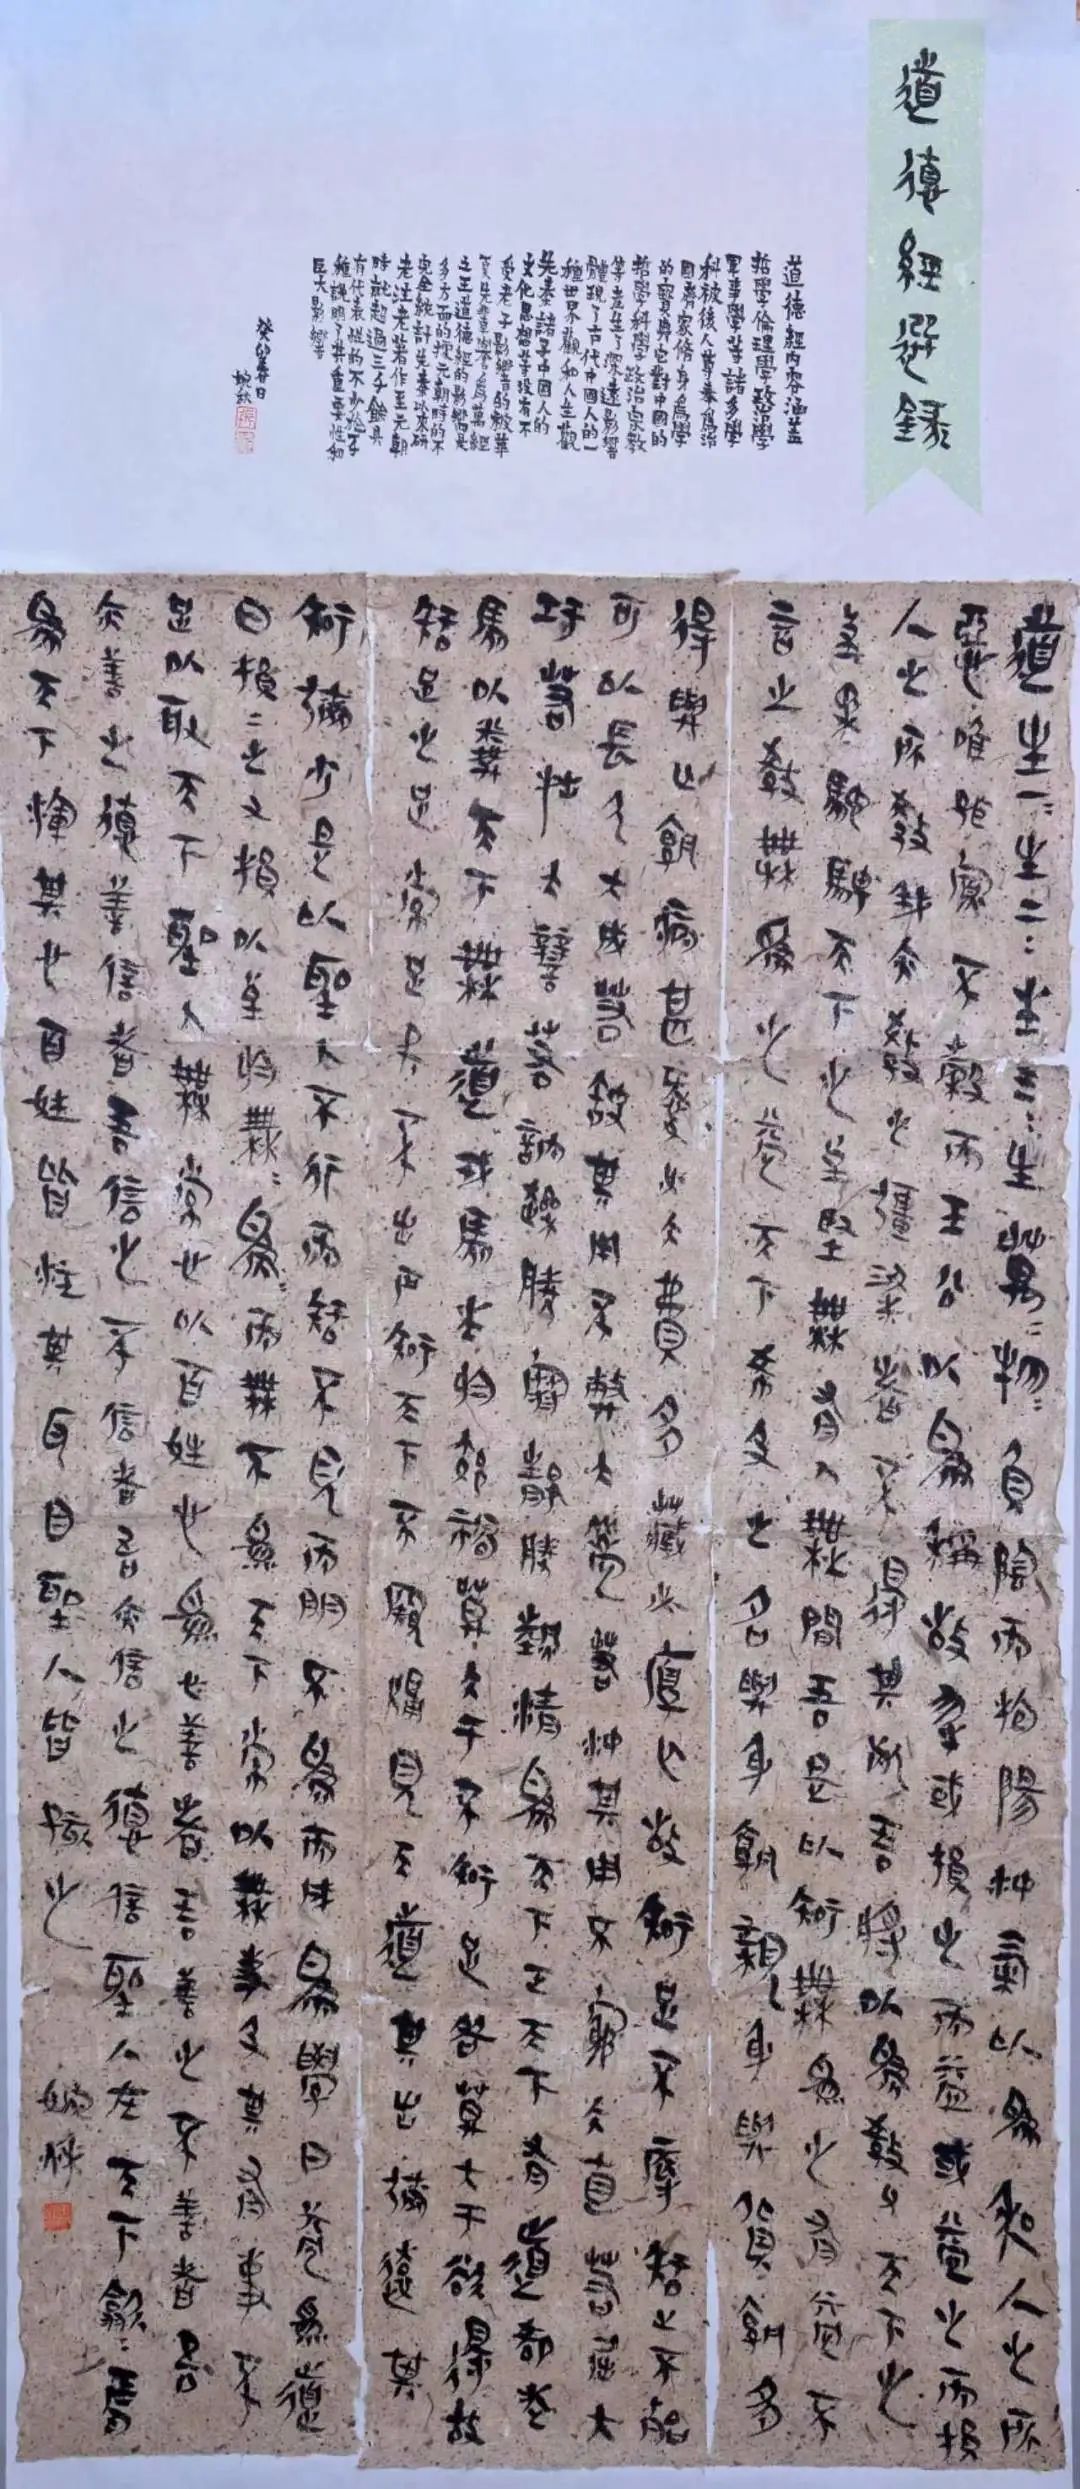 道德經選錄
道德經內容涵蓋
哲學倫理學政治學
軍事學等諸多學
科被後人尊奉為治
國齊家修身為學
的寶典它對中國的
哲學科學政治宗教
等產生了深遠影響
體現了古代中國人的一
種世界觀和人生觀
先秦諸子中國人的
文化思想等沒有不
受老子影響的被華
夏先輩譽為萬經
之王道德經的影響是
多方面的據元朝時的不
完全統計先秦以來研
老注老著作至元朝
時就超過三千餘具
有代表性的不少於子
種說明了其重要性和
巨大影響
癸卯春日
婉秋
道生一=生二=生三=生萬=物=負陰而抱陽沖氣以為和人之所
惡也唯孤寡不穀而王公以為稱故物或損之而益或益之而損
人之所教我亦教之強梁者不得其死吾將以為教父天下之
至柔馳騁天下之至堅無有入無間吾是以知無為之有益不
言之教無為之益天下希及之名與身孰親身與貨孰多
得與亡孰病甚愛必大費多藏必厚亡故知足不辱知止不殆
可以長久大成若缺其用不弊大盈若沖其用不窮大直若屈大
巧若拙大辯若訥躁勝寒靜勝熱清為天下正天下有道卻走
馬以糞天下無道戎馬生於郊禍莫大于不知足咎莫大于欲得故
知足之足常足矣不出戶知天下不窺牖見天道其出彌遠其
知彌少是以聖人不行而知不見而明不為而成為學日益為道
日損=之又損以至於無=為=而無不為天下常以無事及其有事不
足以取天下聖人無常心以百姓心為心善者吾善之不善者吾
亦善之德善信者吾信之不信者吾亦信之德信聖人在天下歙=焉
為天下渾其心百姓皆注其耳目聖人皆孩之 婉秋